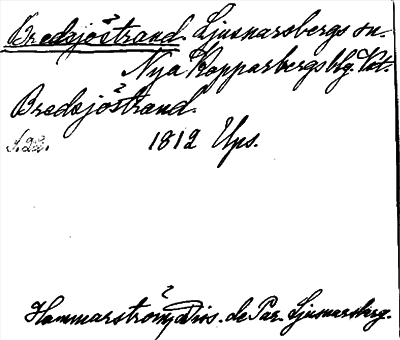 Bredsjöstrand. Ljusnarsbergs sn.
Nya Kopparbergs blg. Vst.
Bredsjöstrand.
S. 22. 1812 Ups.
Hammarström, Diss. de Par. Ljusnarsberg.